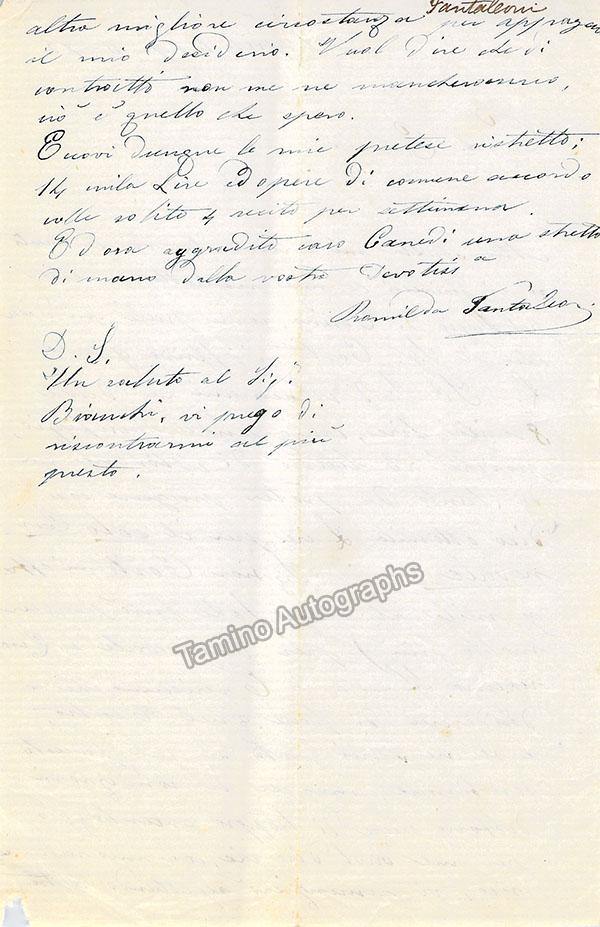 Pantaleoni
altra migliore circostanza per appagare
il mio desiderio. Vuol dire che di
contratti non me ne mancheranno,
ciò è quello che spero.
Eccovi dunque le mie pretese ristrette;
14 mila Lire ed opere di comune accordo
colle solite 4 recite per settimana.
Ed ora aggradite caro Canedi una stretta
di mano dalla vostra Devotissa
Romilda Pantaleoni
P. S.
Un saluto al Sigr
Bianchi, vi prego di
riscontrarmi al più
presto.
Tamino Autographs